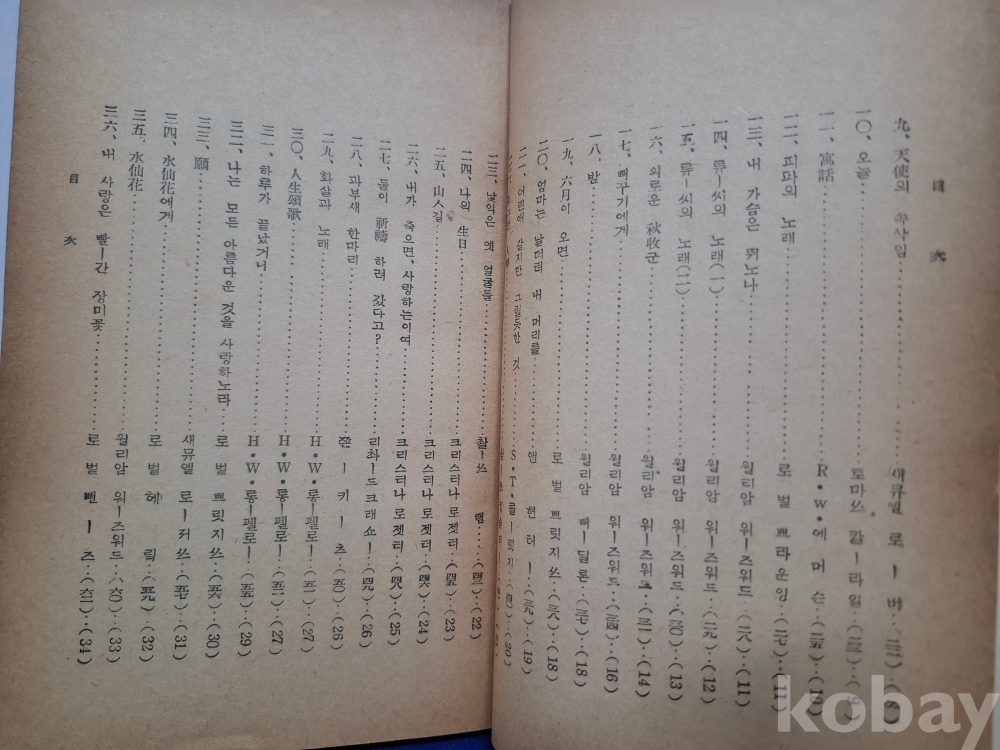 目 次
九、天使의 속삭임 새뮤엘 로ー버
一〇、오늘 토마쓰 칼ー라일
一一、寓話 R・W・에머슨 (10)
一二、피파의 노래 로벌 쁘라운잉 (11)
一三、내 가슴은 뛰노나 윌리암 워ー즈워드 (二八) (11)
一四、류ー씨의 노래(一) 윌리암 워ー즈워드 (二九) (12)
一五、류ー씨의 노래(二) 윌리암 워ー즈워드 (三〇) (13)
一六、외로운 秋收군 윌리암 워ー즈워드 (三二) (14)
一七、뻐꾸기에게 윌리암 워ー즈워드 (三四) (16)
一八、밤 윌리암 뻐ー딜론 (三七) (18)
一九、六月이 오면 로벌 쁘릿지쓰 (三八) (18)
二〇、엄마는 날더러 내 머리를 앤 헌터ー (三九) (19)
二一、어련해 같지만 그럴듯한 것 S・T・콜ー릿지 (20)
二三、낯익은 옛 얼굴들 촬ー쓰 램 (四三) (22)
二四、나의 生日 크리스터나 로젯터 (四五) (23)
二五、山ㅅ길 크리스터나 로젯터 (四六) (24)
二六、내가 죽으면、사랑하는이여 크리스터나 로젯터 (四八) (25)
二七、둘이 祈禱 하려 갔다고? 리촤ー드 크래쇼ー (四九) (26)
二八、과부새 한마리 쫀ー 키ー츠 (五〇) (26)
二九、화살과 노래 H・W・롱ー펠로ー (五一) (27)
三〇、人生頌歌 H・W・롱ー펠로ー (五二) (27)
三一、하루가 끝났거니 H・W・롱ー펠로ー (五五) (29)
三二、나는 모든 아름다운 것을 사랑하노라 로벌 쁘릿지쓰 (五六) (30)
三三、願 새뮤엘 로ー저쓰 (五七) (31)
三四、水仙花에게 로벌 헤릭 (五九) (32)
三五、水仙花 윌리암 워ー즈워드 (六〇) (33)
三六、내 사랑은 빨ー간 장미꽃 로벌 뻔ー즈 (六二) (34)
目 次
kobay